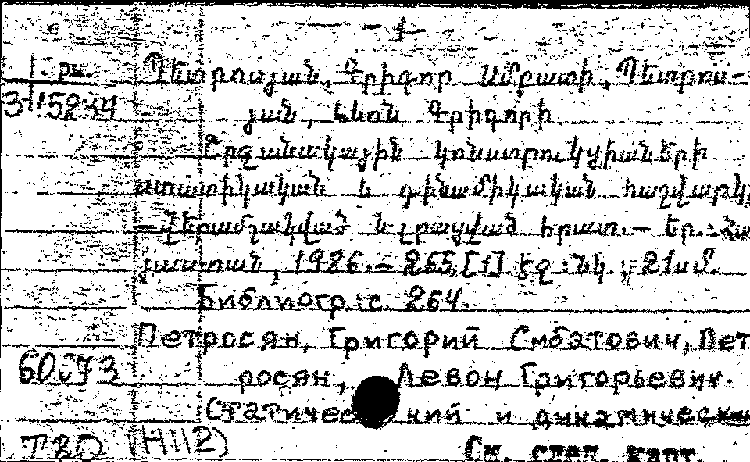 1
Պետրոսյան, Գրիգոր Սմբատի, Պետրոս-
3-15234 յան, Լևոն Գրիգորի
Շրջանակային կոնստրուկցիաների
ստատիկական և դինամիկական հաշվարկ
– Վերամշակված և լրացված հրատ. – Եր.: Հա
յաստան, 1986. – 265, [1] էջ : նկ ; 21 սմ.
Библиогр. с. 264.
Петросян, Григорий Смбатович, Пет
росян, Левон Григорьевич.
Статичес кий и динамическ
Т80 (Н112) См. след. карт.